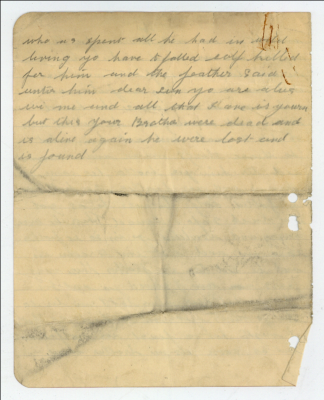 who as spent all he had in wild
living yo have killed calf
for him and the feather said
unto him dear son yo are alus
wi me and all that I ave is yours
but this your Brotha were dead and
is alive again he were lost and
is found